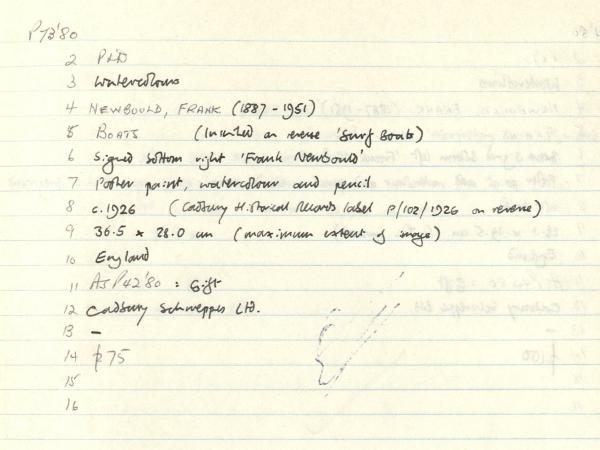 P73'80
2 P&D
3 Watercolours
4 NEWBOULD, FRANK (1887-1951)
5 BOATS (Inscribed on reverse 'Surf Boats')
6 Signed bottom right 'Frank Newbould'
7 Poster paint, watercolour and pencil
8 c.1926 (Cadbury Historical Records label P/102/1926 on reverse)
9 36.5 x 28.0 cm (maximum extent of image)
10 England
11 As P42'80 : Gift
12 Cadbury Schweppes Ltd.
13 –
14 £75
15
16